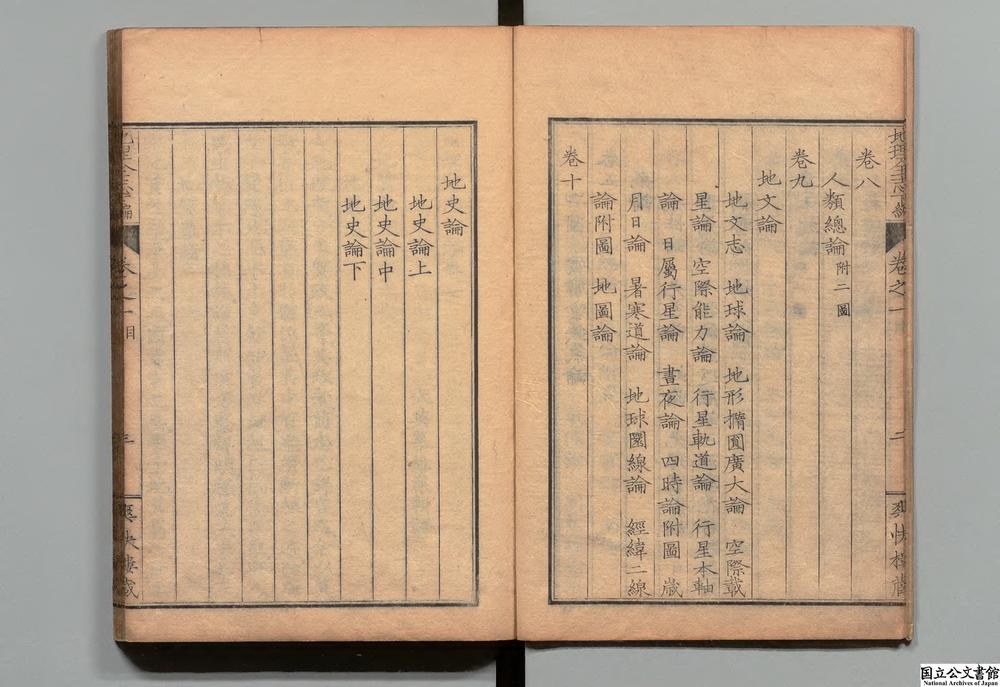 地理全志下編 卷之一 二 爽快樓藏
卷八
人類總論附二圖
卷九
地文論
地文志 地球論 地形橢圓廣大論 空際載
星論 空際能力論 行星軌道論 行星本軸
論 日屬行星論 晝夜論 四時論附圖 歲
月日論 暑寒道論 地球圜線論 經緯二線
論附圖 地圖論
卷十
地史論
地史論上
地史論中
地史論下
卷之一目 三 爽快樓藏
国立公文書館
National Archives of Japan